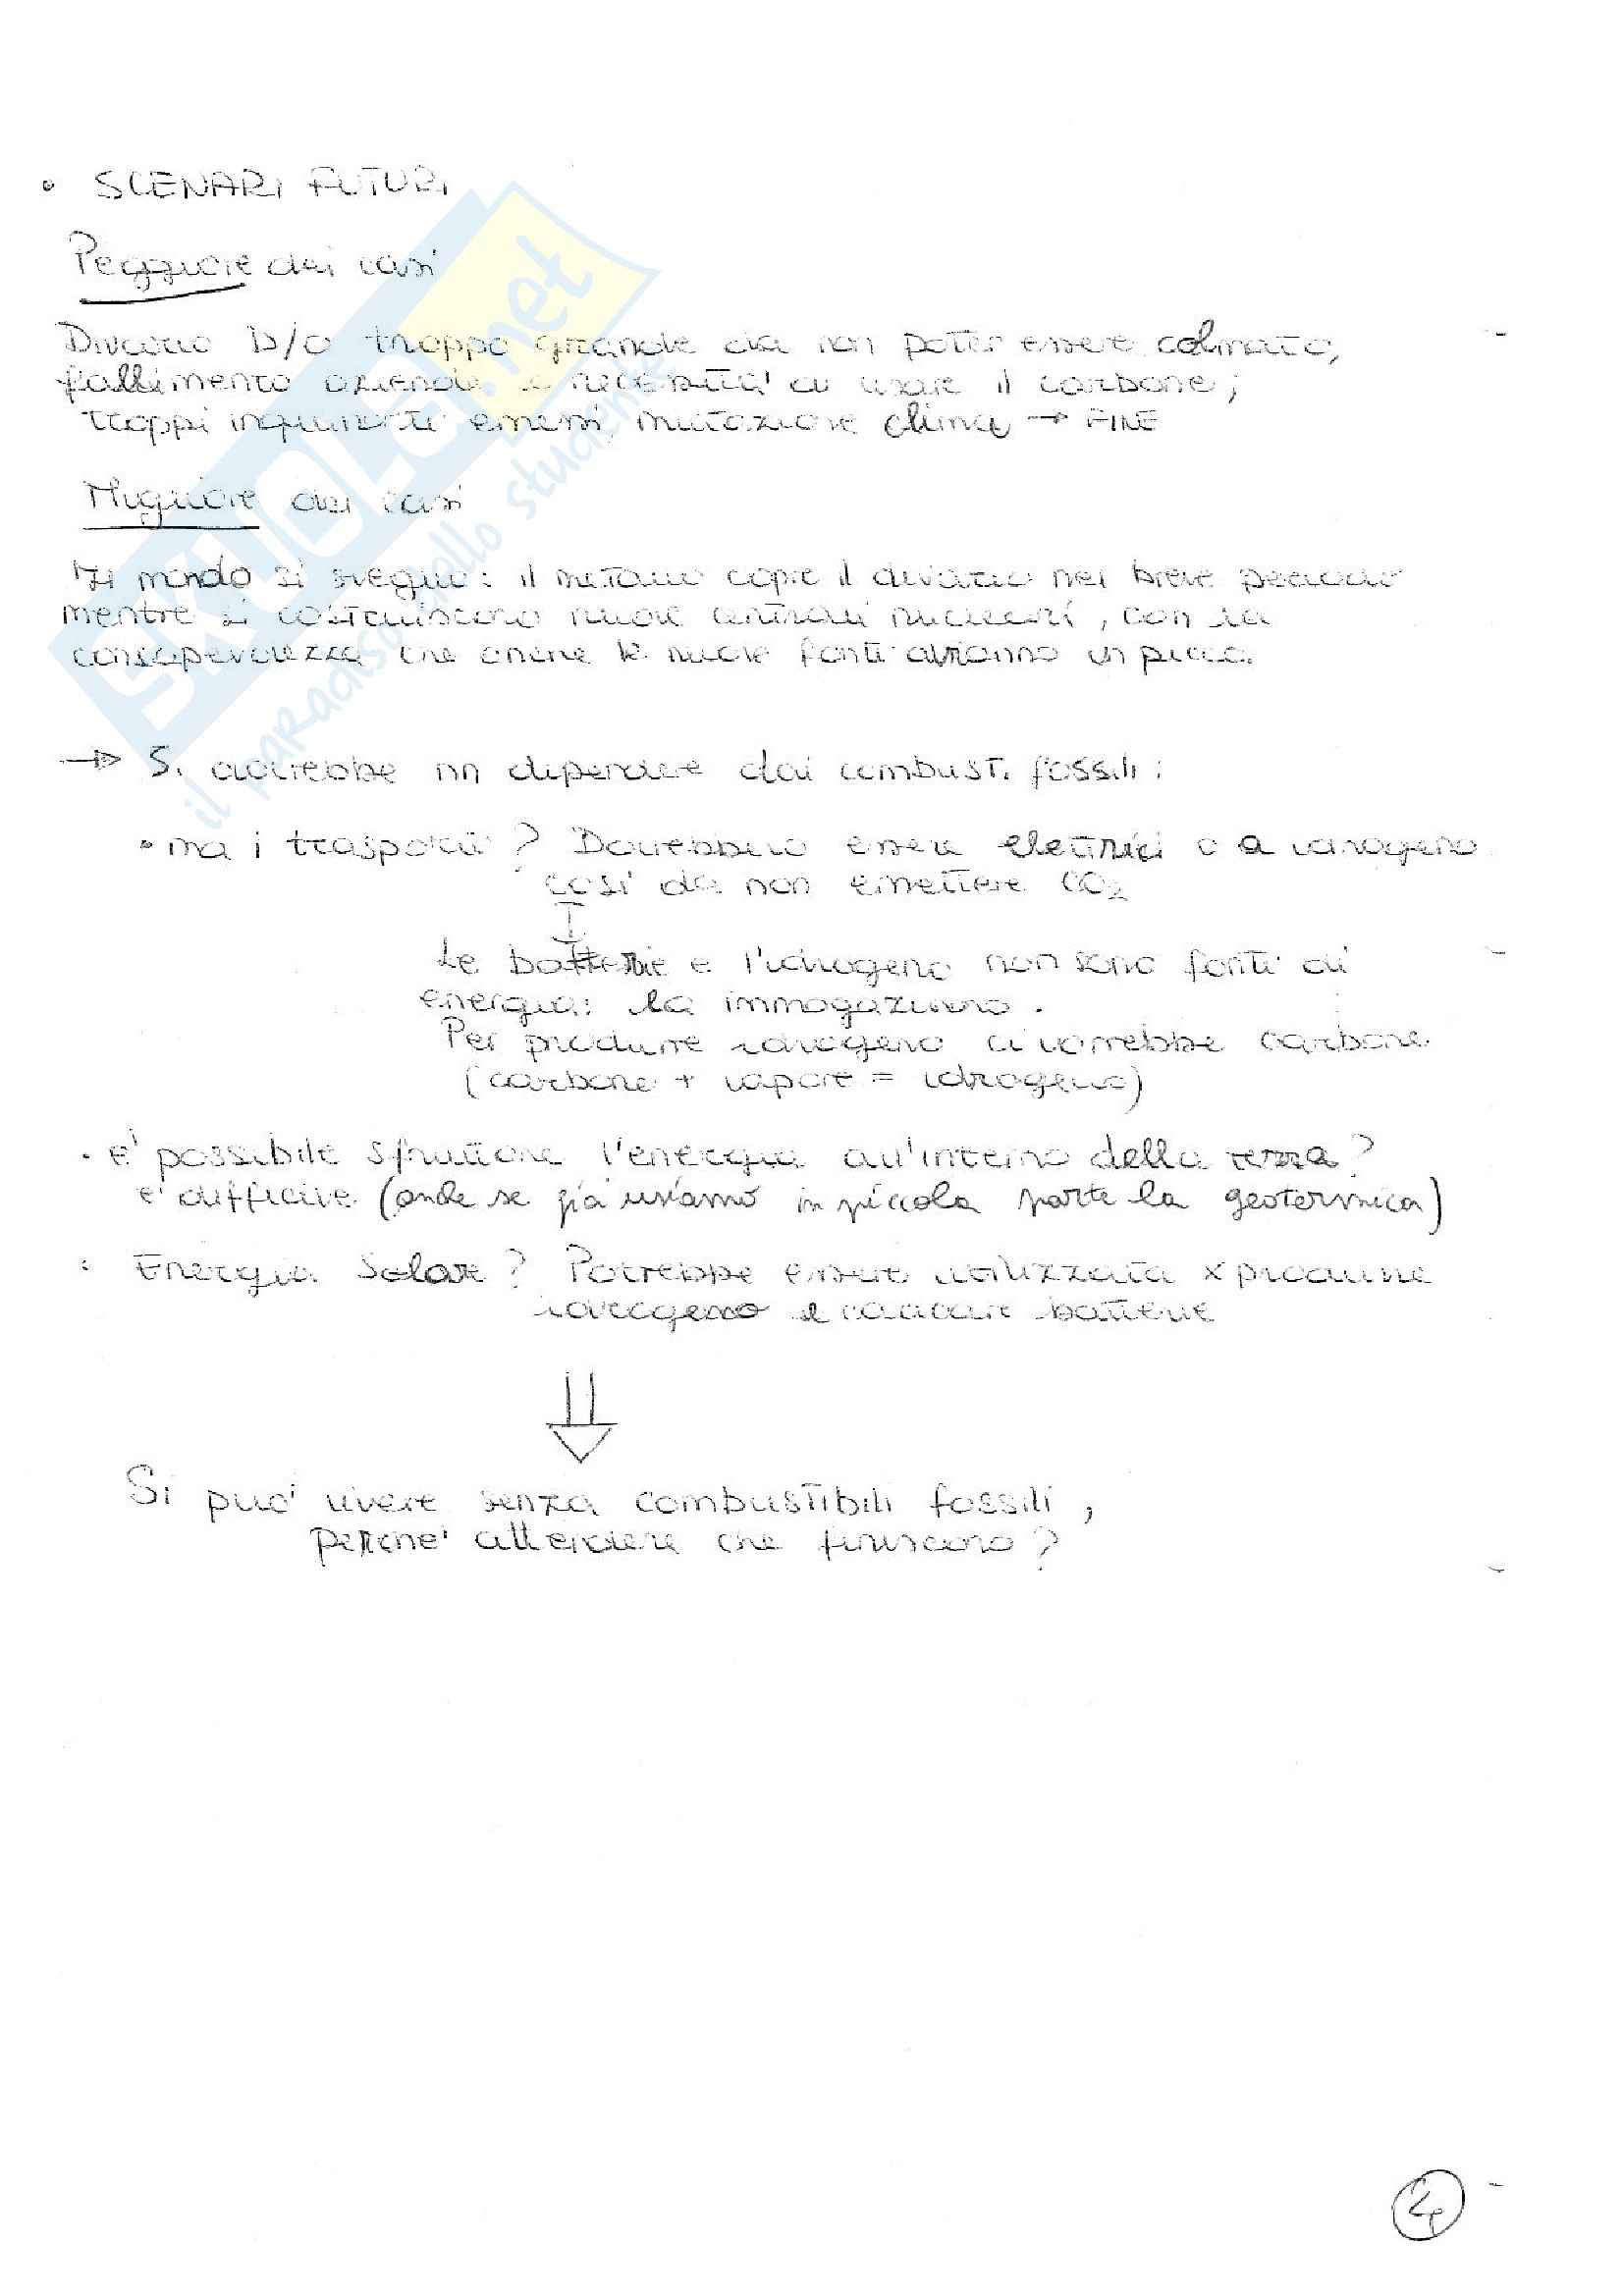 • SCENARI FUTURI
Peggiore dei casi
Divario D/O troppo grande da non poter essere colmato,
fallimento aziende e necessità di usare il carbone;
troppi inquinanti emessi, mutazione clima → FINE
Migliore dei casi
Il mondo si sveglia: il metano copre il divario nel breve periodo
mentre si costruiscono nuove centrali nucleari, con la
consapevolezza che anche le nuove fonti avranno un picco.
→ Si dovrebbe non dipendere dai combusti. fossili:
• ma i trasporti? Dovrebbero essere elettrici o a idrogeno
così da non emettere CO2
Le batterie e l'idrogeno non sono fonti di
energia: la immagazzinano.
Per produrre idrogeno ci vorrebbe carbone
(carbone + vapore = idrogeno)
• e' possibile sfruttare l'energia all'interno della terra?
e' difficile (anche se già usiamo in piccola parte la geotermica)
• Energia Solare? Potrebbe essere utilizzata x produrre
idrogeno e caricare batterie
Si può vivere senza combustibili fossili,
perchè attendere che finiscano?
SKUOLA.net
il paradiso dello studente